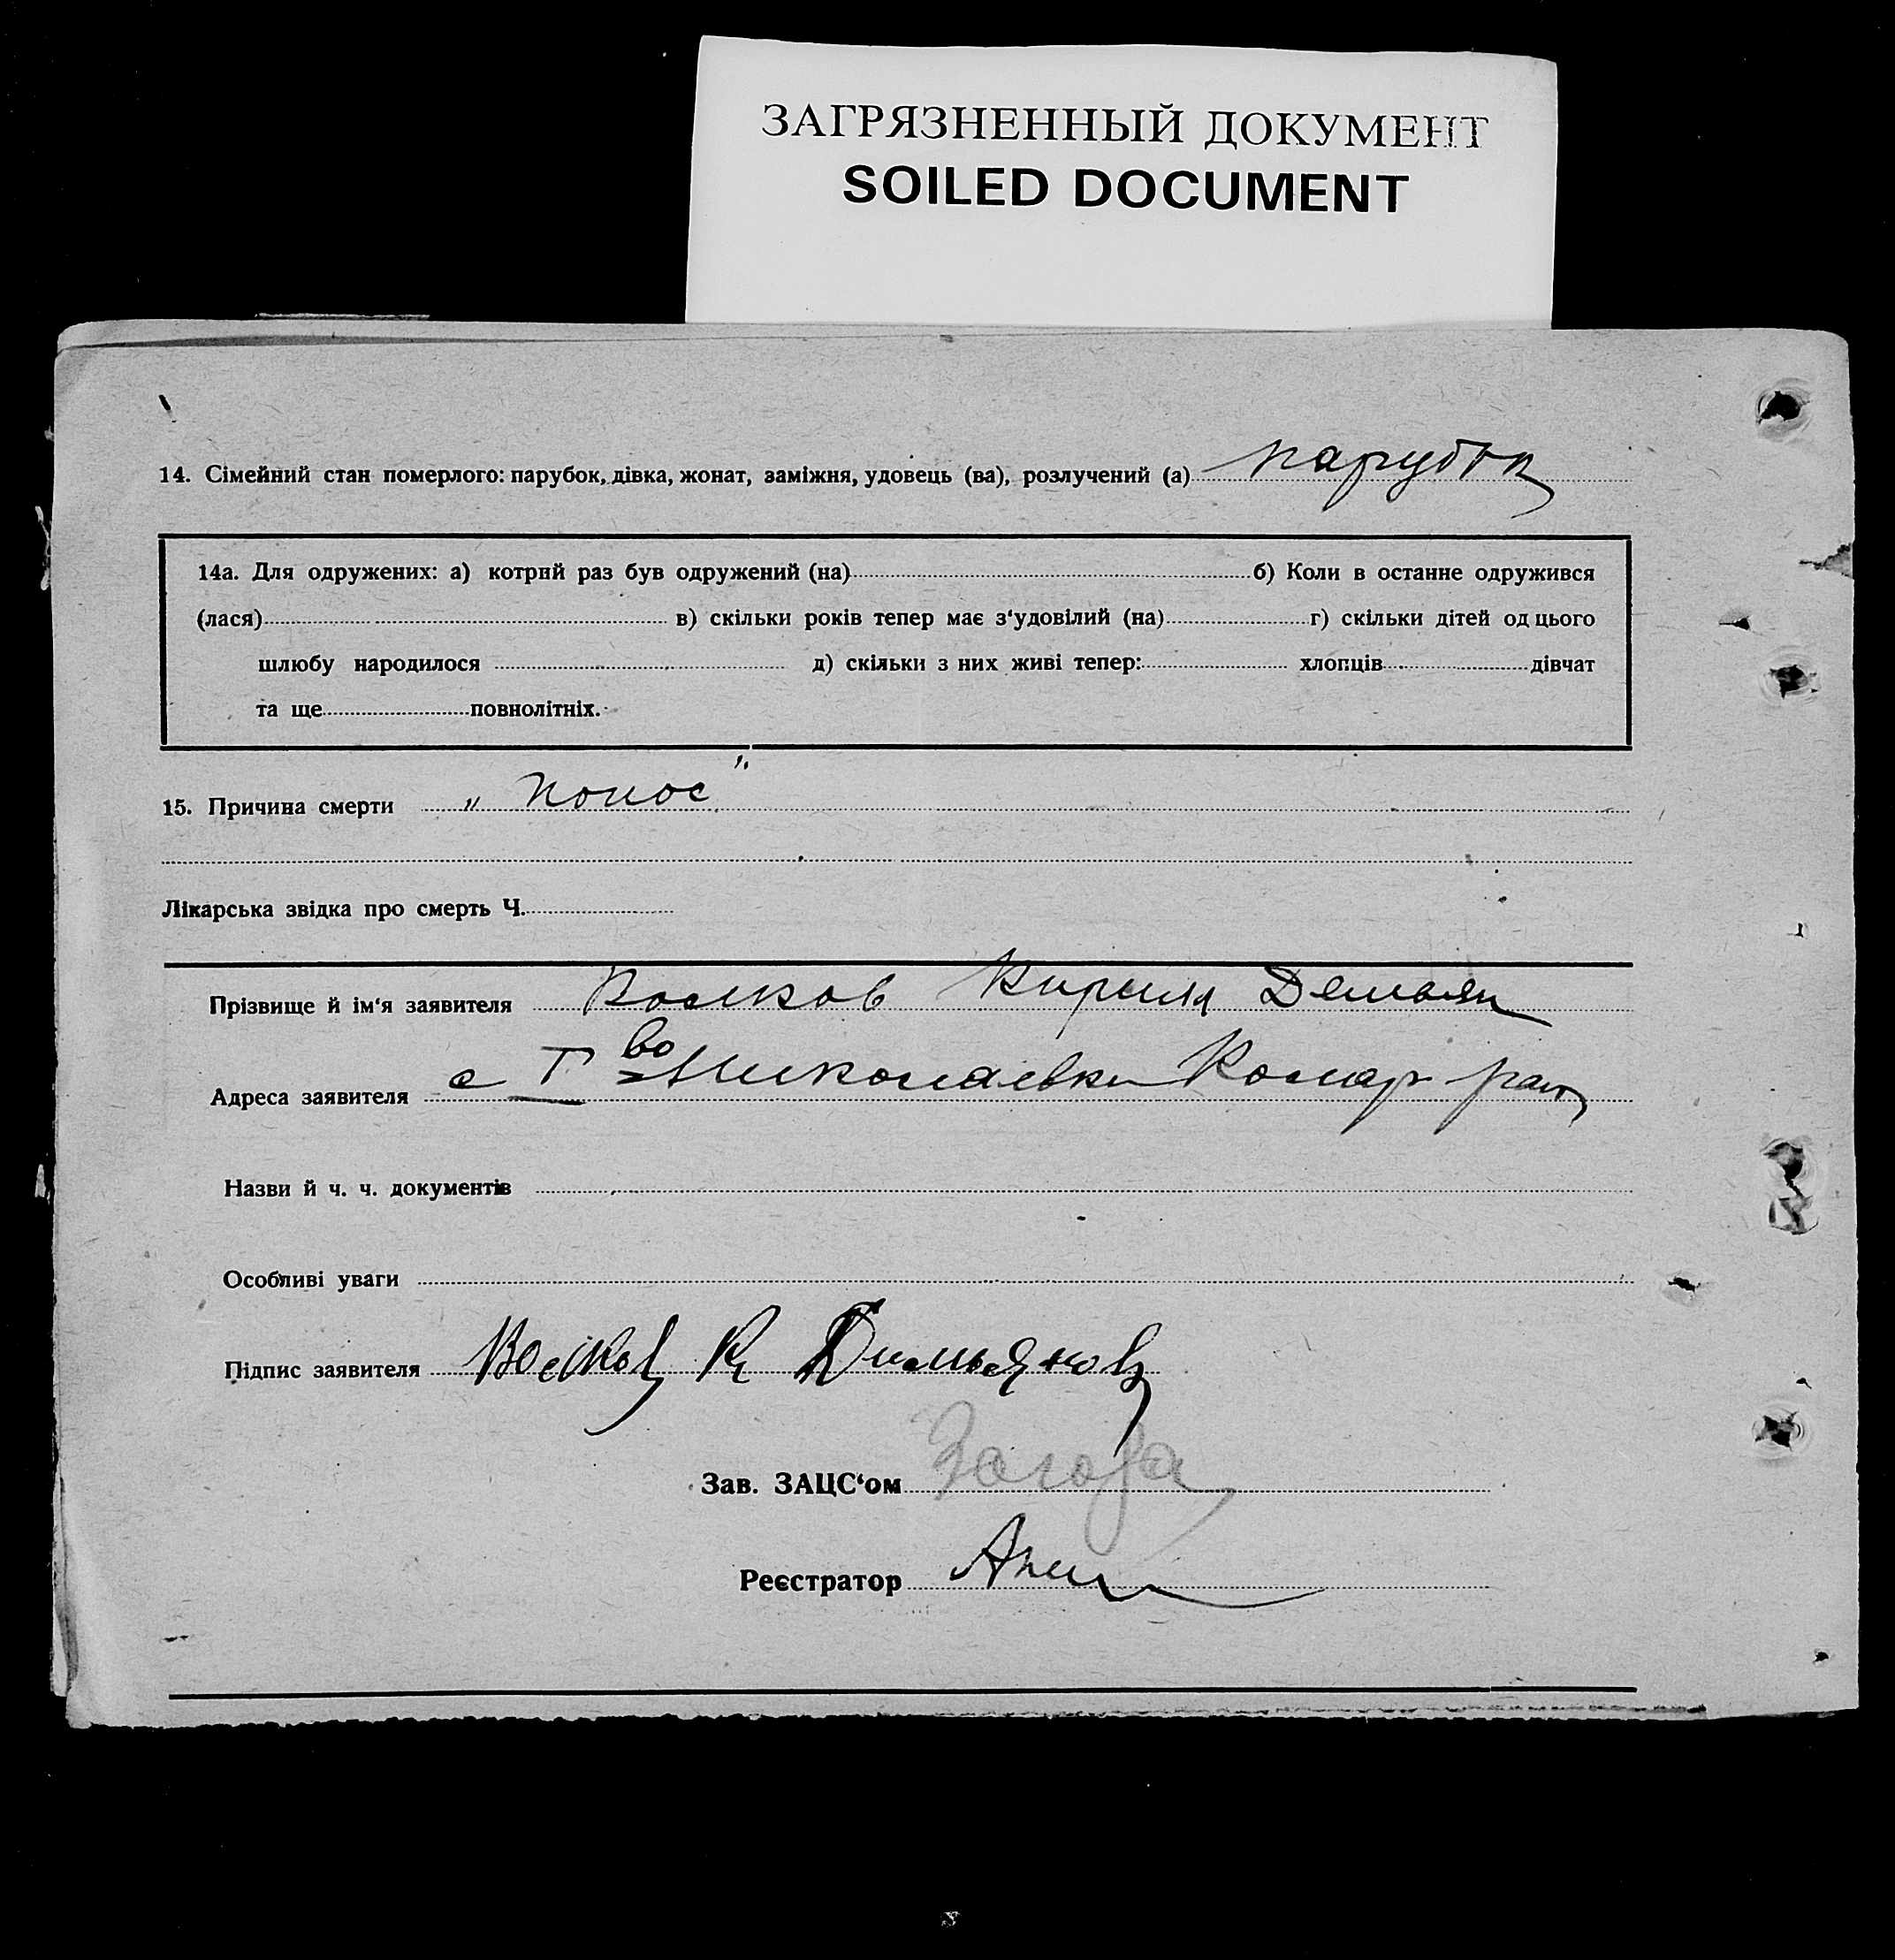 ЗАГРЯЗНЕННЫЙ ДОКУМЕНТ
SOILED DOCUMENT
14. Сімейний стан померлого: парубок, дівка, жонат, заміжня, удовець (ва), розлучений (а) парубок
14а. Для одружених: а) котрий раз був одружений (на) б) Коли в останнє одружився
(лася) в) скільки років тепер має з‘удовілий (на) г) скільки дітей од цього
шлюбу народилося д) скільки з них живі тепер: хлопців дівчат
та ще повнолітніх.
15. Причина смерти „ понос "
Лікарська звідка про смерть Ч.
Прізвище й ім‘я заявителя Кирила Демьян
Адреса заявителя с Николаевка Комар
Назви й ч. ч. документів
Особливі уваги
Підпис заявителя К
Зав. ЗАЦС‘ом
Реєстратор